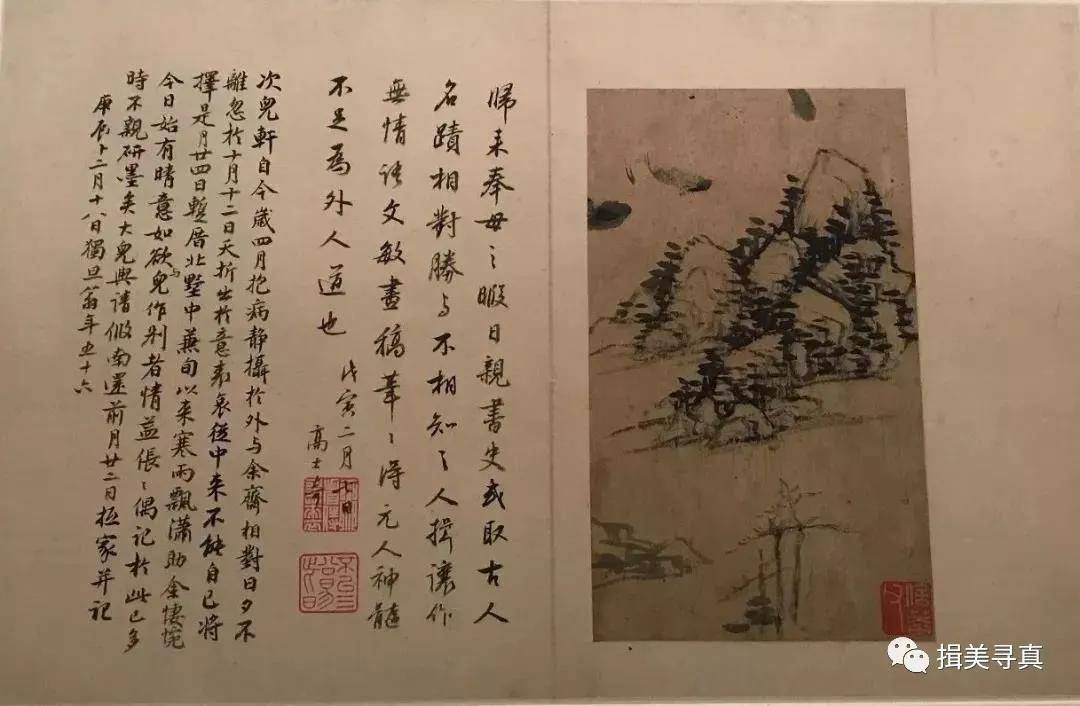 歸来奉母之暇日親書史或取古人
名蹟相對勝与不相知之人揖讓作
無情語文敏畫稿筆〻得元人神髓
不足為外人道也
戊寅二月七日
高士奇
次兒軒自今歲四月抱病靜攝於外与余齋相對日夕不
離忽於十月十二日夭折出於意表哀從中来不能自已將
擇是月廿四日暫厝北墅中蕪旬以来寒雨飄瀟助余悽惋
今日始有晴意如欲与兒作别者情益倀〻偶記於此已多
時不親研墨矣大兒輿請假南還前月廿二日抵家并記
庚辰十二月十八日獨旦翁年五十六
揖美寻真